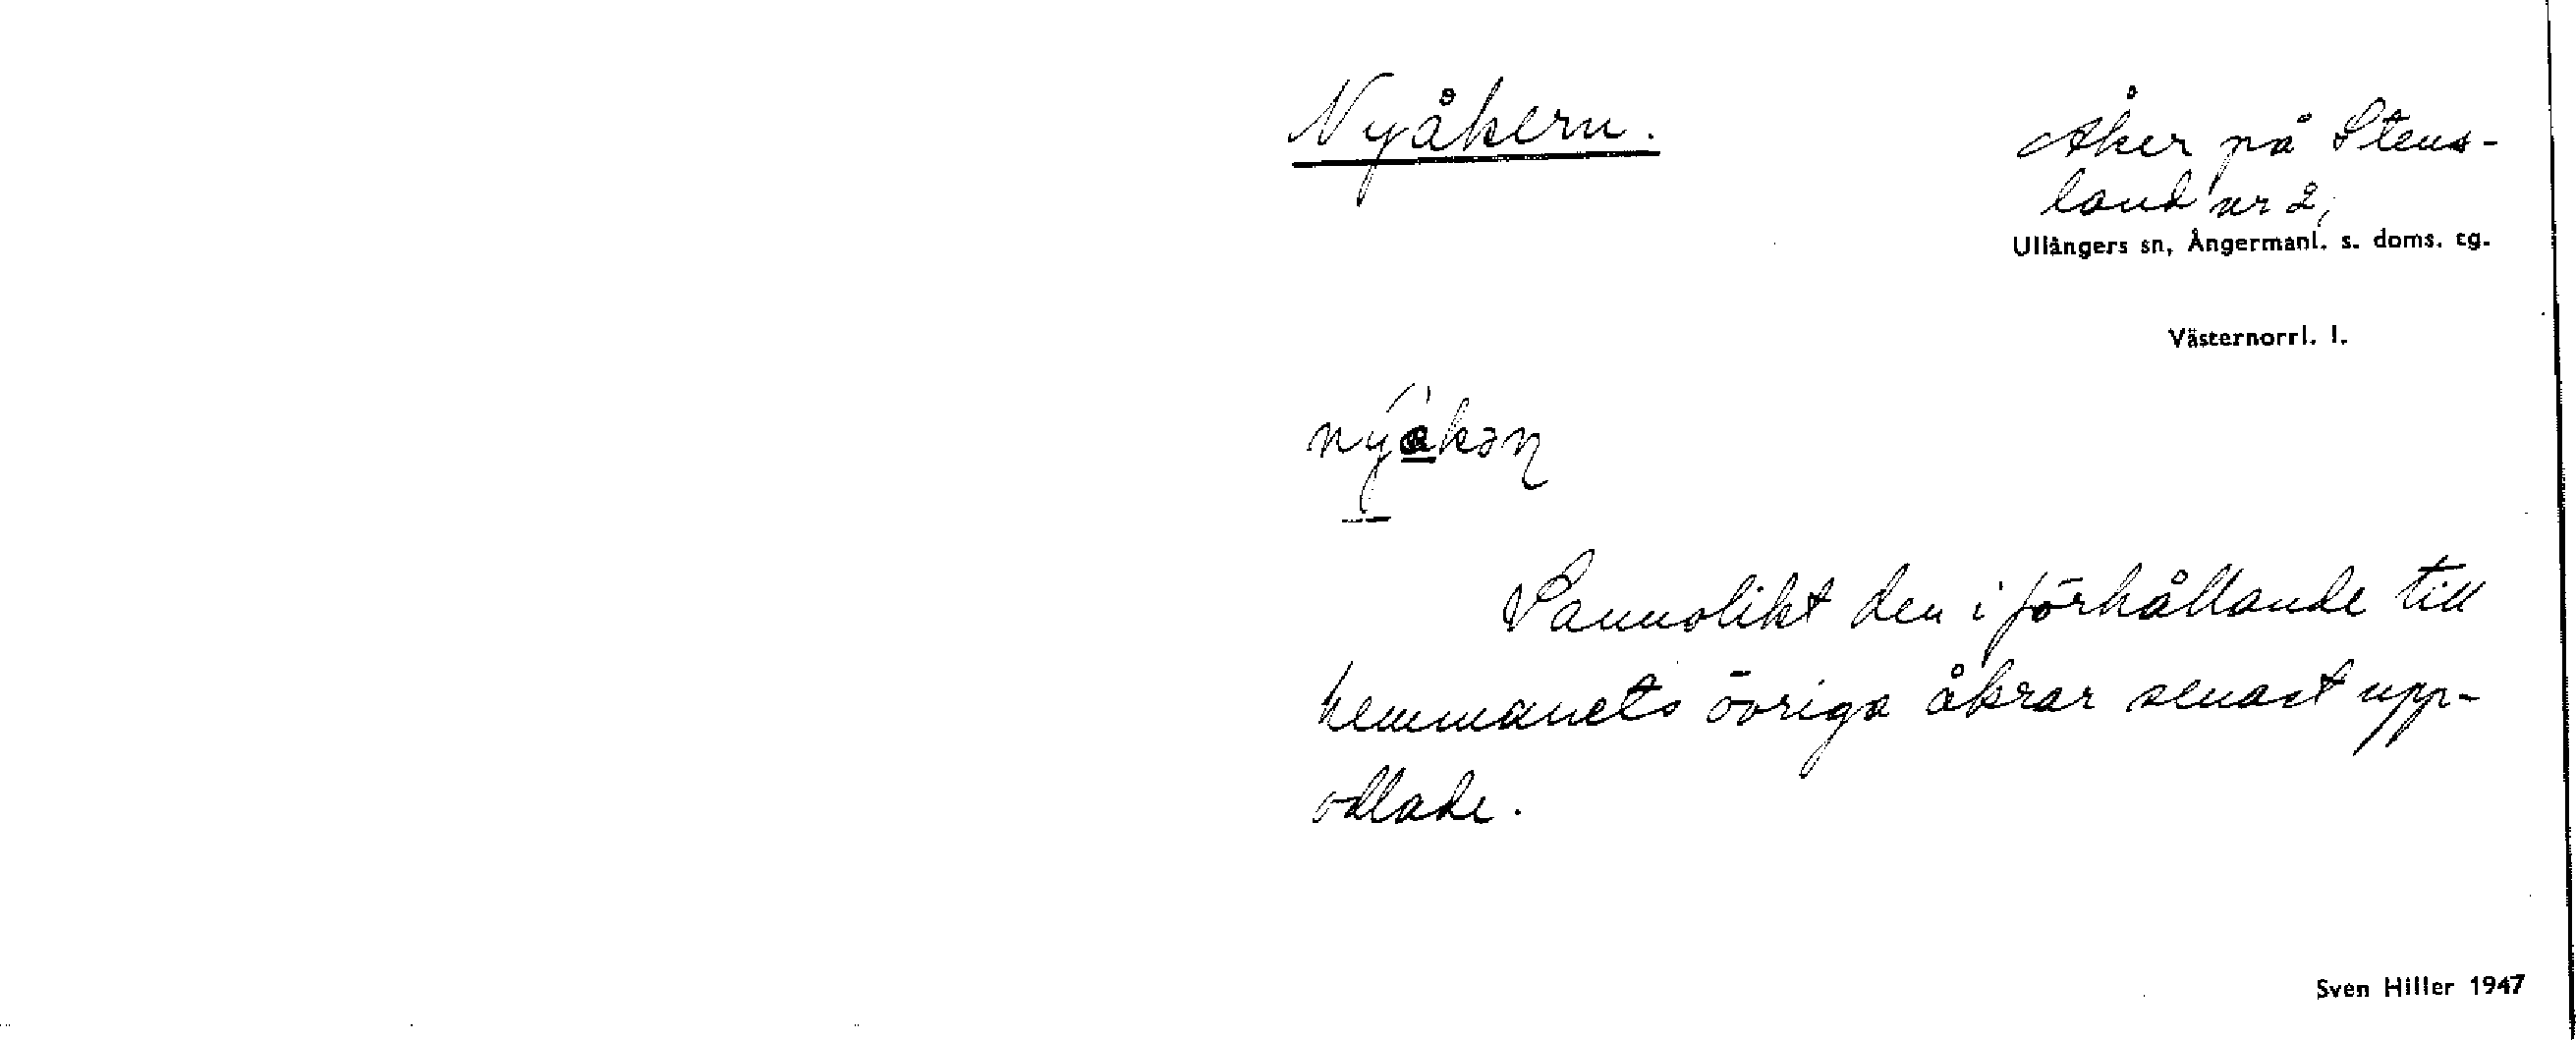 Nyåkern.
Åker på Stens-
land nr 2,
Ullångers sn, Ångermanl. s. doms. tg.
Västernorrl. l.
Sannolikt den i förhållande till
hemmanets övriga åkrar senast upp-
odlade.
Sven Hiller 1947